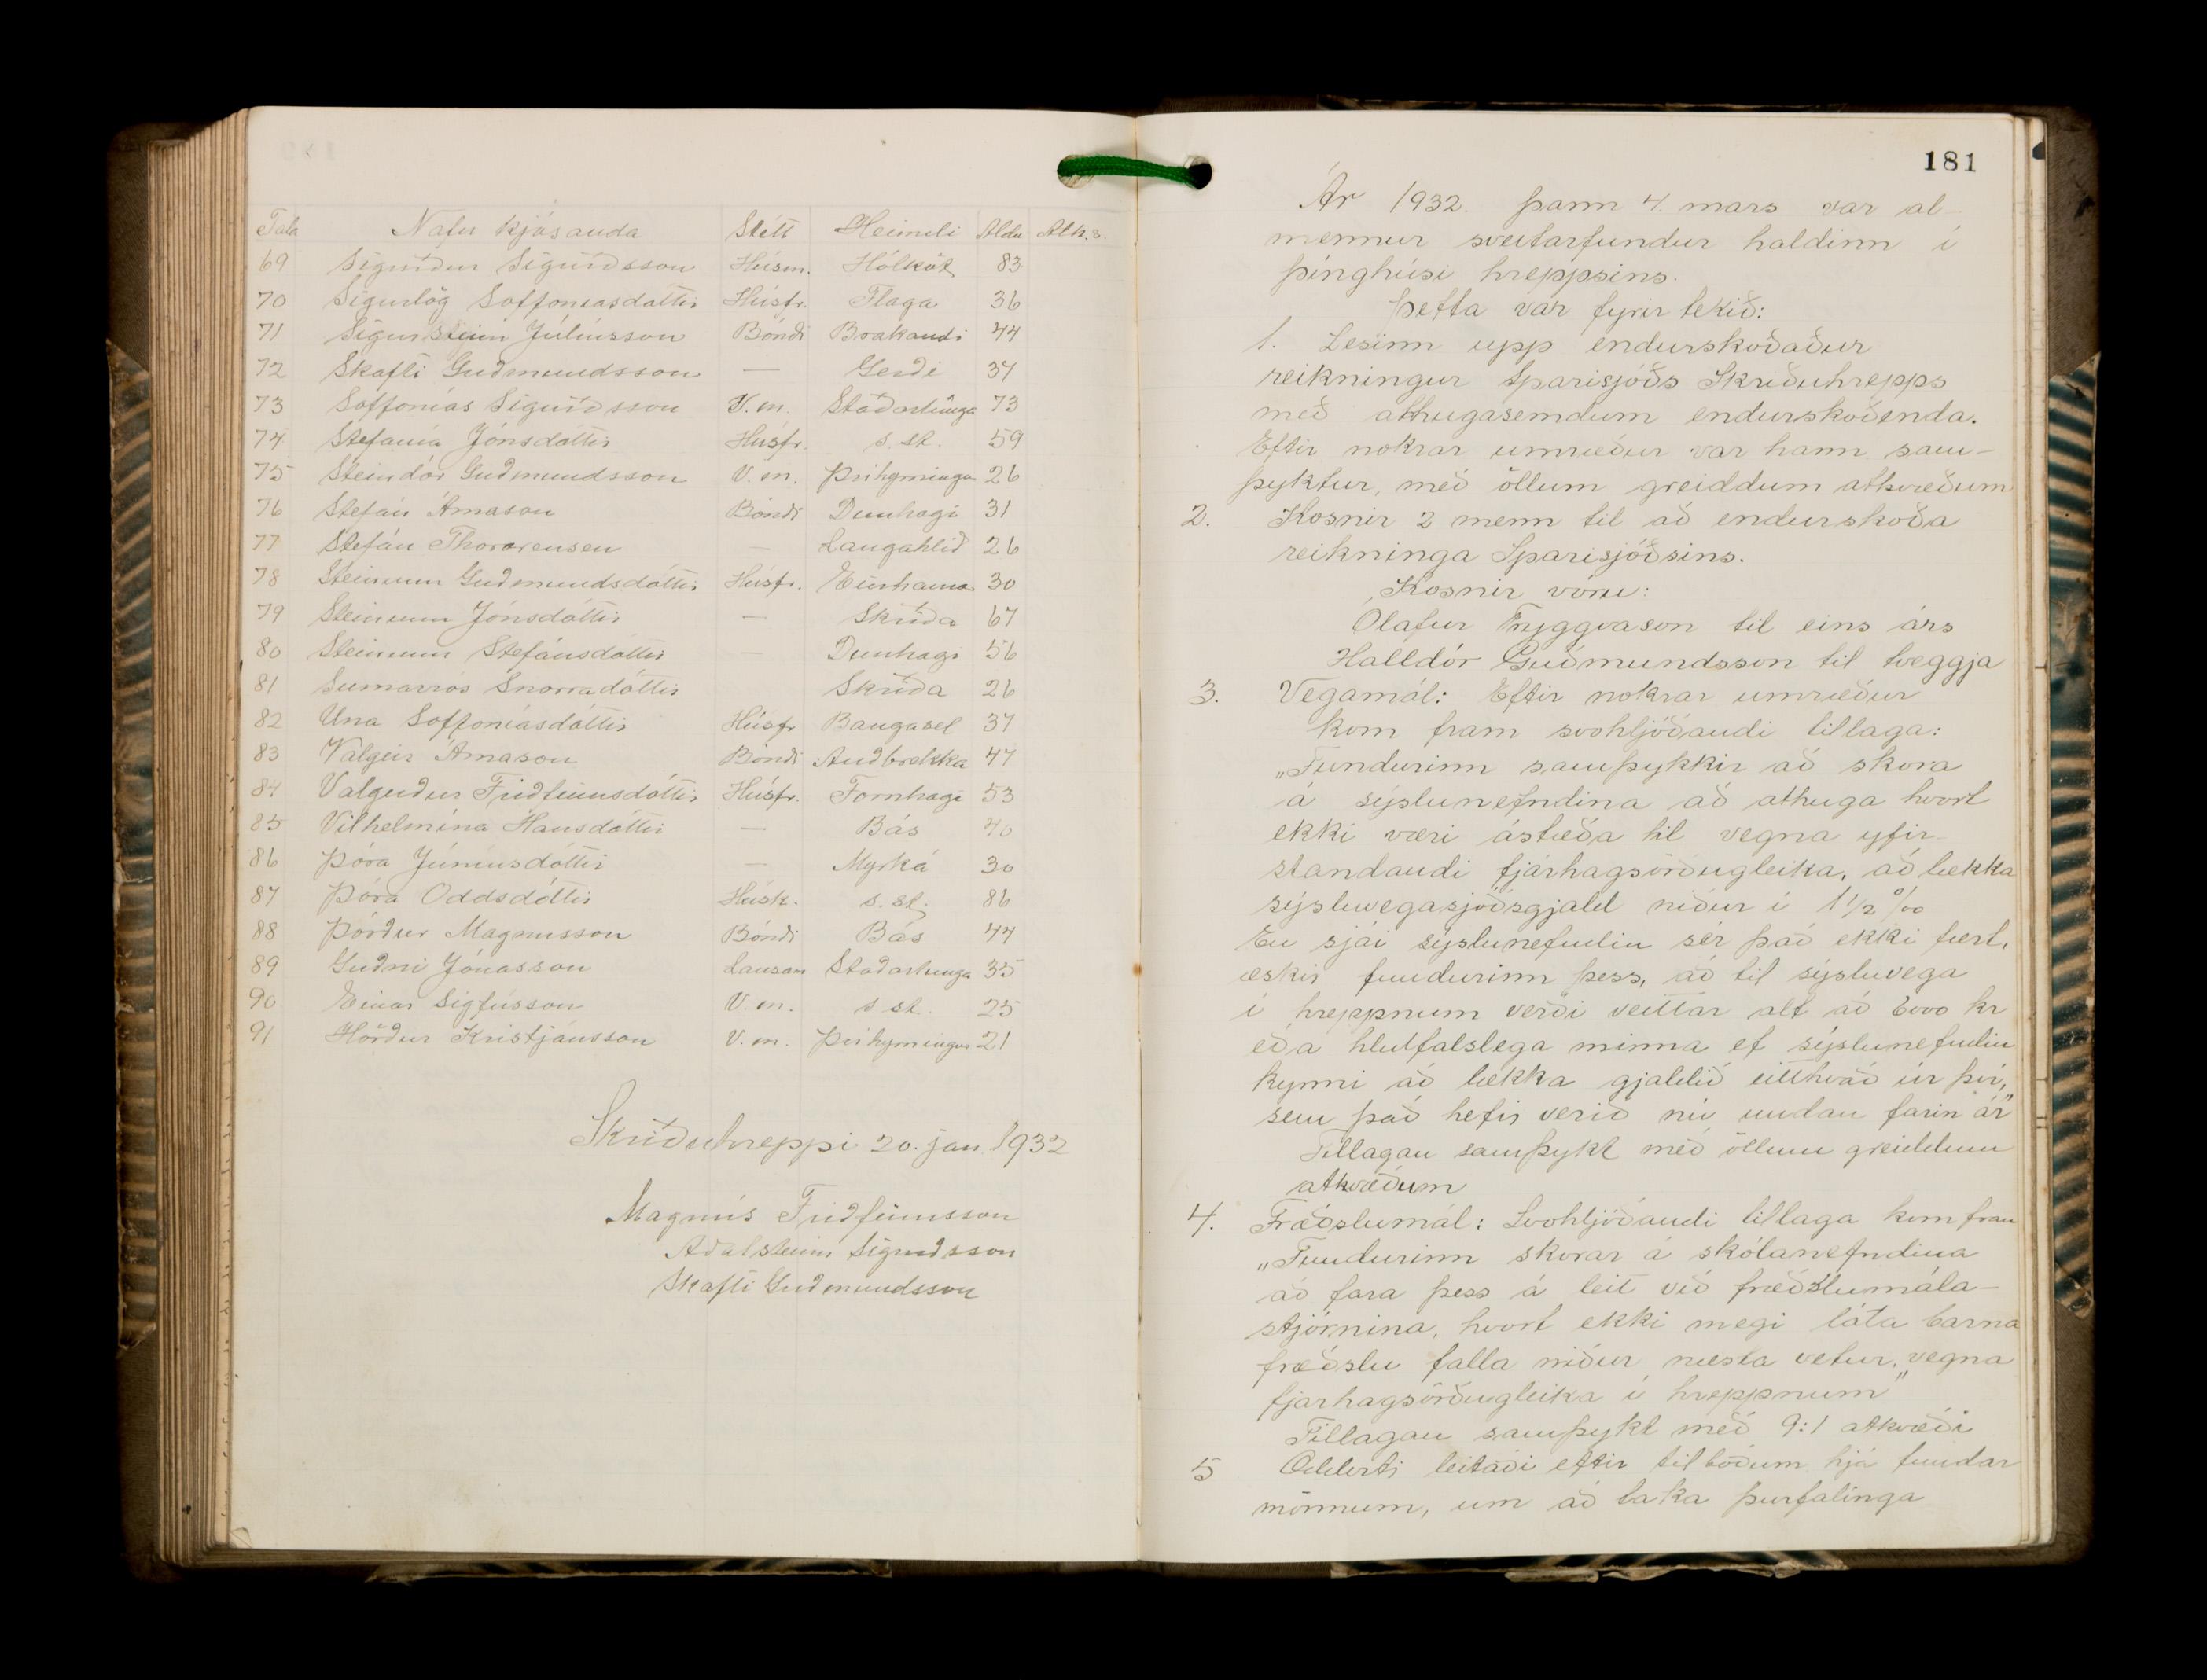 Tala Nafn kjósanda Stétt Heimili Aldur Ath.s.
69 Sigurður Sigurðsson Húsm. Hólkot 83
70 Sigurlög Soffoníasdóttir Húsfr. Flaga 36
71 Sigursteinn Júlíusson Bóndi Brakandi 44
72 Skafti Guðmundsson — Gerði 37
73 Soffonías Sigurðsson V.m. Staðartunga 73
74 Stefanía Jónsdóttir Húsfr. s.st. 59
75 Steindór Guðmundsson V.m. Þríhyrninga 26
76 Stefán Árnason Bóndi Dunhagi 31
77 Stefán Thorarensen — Laugahlíð 26
78 Steinunn Guðmundsdóttir Húsfr. Einhamar 30
79 Steinunn Jónsdóttir — Skriða 67
80 Steinunn Stefánsdóttir — Dunhagi 56
81 Sumarrós Snorradóttir Skriða 26
82 Una Soffoníasdóttir Húsfr Baugasel 37
83 Valgeir Árnason Bóndi Auðbrekka 47
84 Valgerður Friðfinnsdóttir Húsfr. Fornhagi 53
85 Vilhelmína Hansdóttir — Bás 40
86 Þóra Júníusdóttir — Myrká 30
87 Þóra Oddsdóttir Húsk. s.st. 86
88 Þórður Magnusson Bóndi Bás 44
89 Guðni Jónasson Lausam Staðartunga 35
90 Einar Sigfússon V.m. s st. 25
91 Hörður Kristjánsson V.m. Þríhyrningur 21
Skriðuhreppi 20. jan 1932
Magnús Friðfinnsson
Aðalsteinn Sigurðsson
Skafti Guðmundsson
181
Ár 1932. þann 4. mars var al-
mennur sveitarfundur haldinn í
þinghúsi hreppsins.
Þetta var fyrir tekið:
1. Lesinn upp endurskoðaður
reikningur Sparisjóðs Skriðuhrepps
með athugasemdum endurskoðenda.
Eftir nokrar umræður var hann sam-
þyktur, með öllum greiddum atkvæðum
2. Kosnir 2 menn til að endurskoða
reikninga Sparisjóðsins.
Kosnir vóru:
Ólafur Tryggvason til eins árs
Halldór Guðmundsson til tveggja
3. Vegamál: Eftir nokrar umræður
kom fram svohljóðandi tillaga:
„Fundurinn samþykkir að skora
á sýslunefndina að athuga hvort
ekki væri ástæða til vegna yfir-
standandi fjárhagsörðugleika, að lækka
sýsluvegasjóðsgjald niður í 1½ ‰
En sjái sýslunefndin sér það ekki fært,
æskir fundurinn þess, að til sýsluvega
í hreppnum verði veittar alt að 6000 kr
eða hlutfalslega minna ef sýslunefndin
kynni að lækka gjaldið eitthvað úr því,
sem það hefir verið nú undan farin ár"
Tillagan samþykt með öllum greiddum
atkvæðum
4. Fræðslumál: Svohljóðandi tillaga kom fram
„Fundurinn skorar á skólanefndina
að fara þess á leit við fræðslumála-
stjórnina, hvort ekki megi láta barna
fræðslu falla niður næsta vetur, vegna
fjarhagsörðugleika í hreppnum"
Tillagan samþykt með 9:1 atkvæði
5 Oddviti leitaði eftir tilboðum hjá fundar
mönnum, um að taka þurfalinga